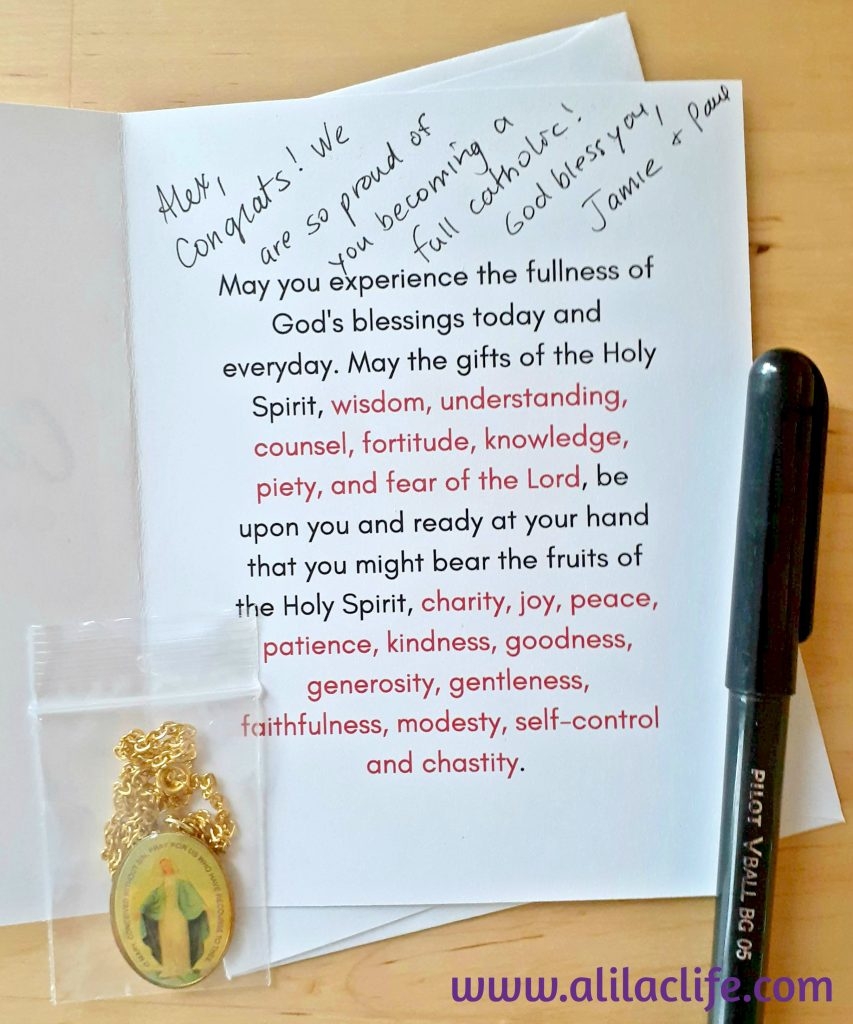 Alex,
Congrats! We
are so proud of
you becoming a
full catholic!
God bless you,
Jamie & Paul
May you experience the fullness of
God's blessings today and
everyday. May the gifts of the Holy
Spirit, wisdom, understanding,
counsel, fortitude, knowledge,
piety, and fear of the Lord, be
upon you and ready at your hand
that you might bear the fruits of
the Holy Spirit, charity, joy, peace,
patience, kindness, goodness,
generosity, gentleness,
faithfulness, modesty, self-control
and chastity.
O MARY CONCEIVED WITHOUT SIN, PRAY FOR US WHO HAVE RECOURSE TO THEE
PILOT VBALL BG 05
www.alilaclife.com